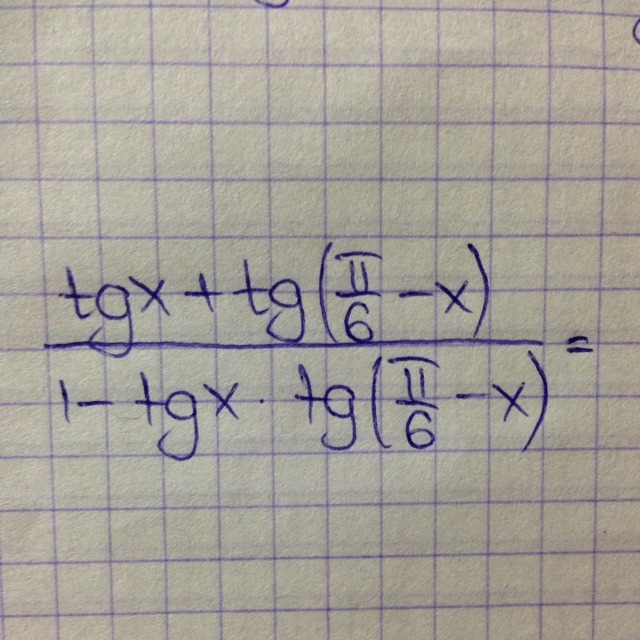 tgx + tg(π/6 - x)
1 - tgx · tg(π/6 - x) =